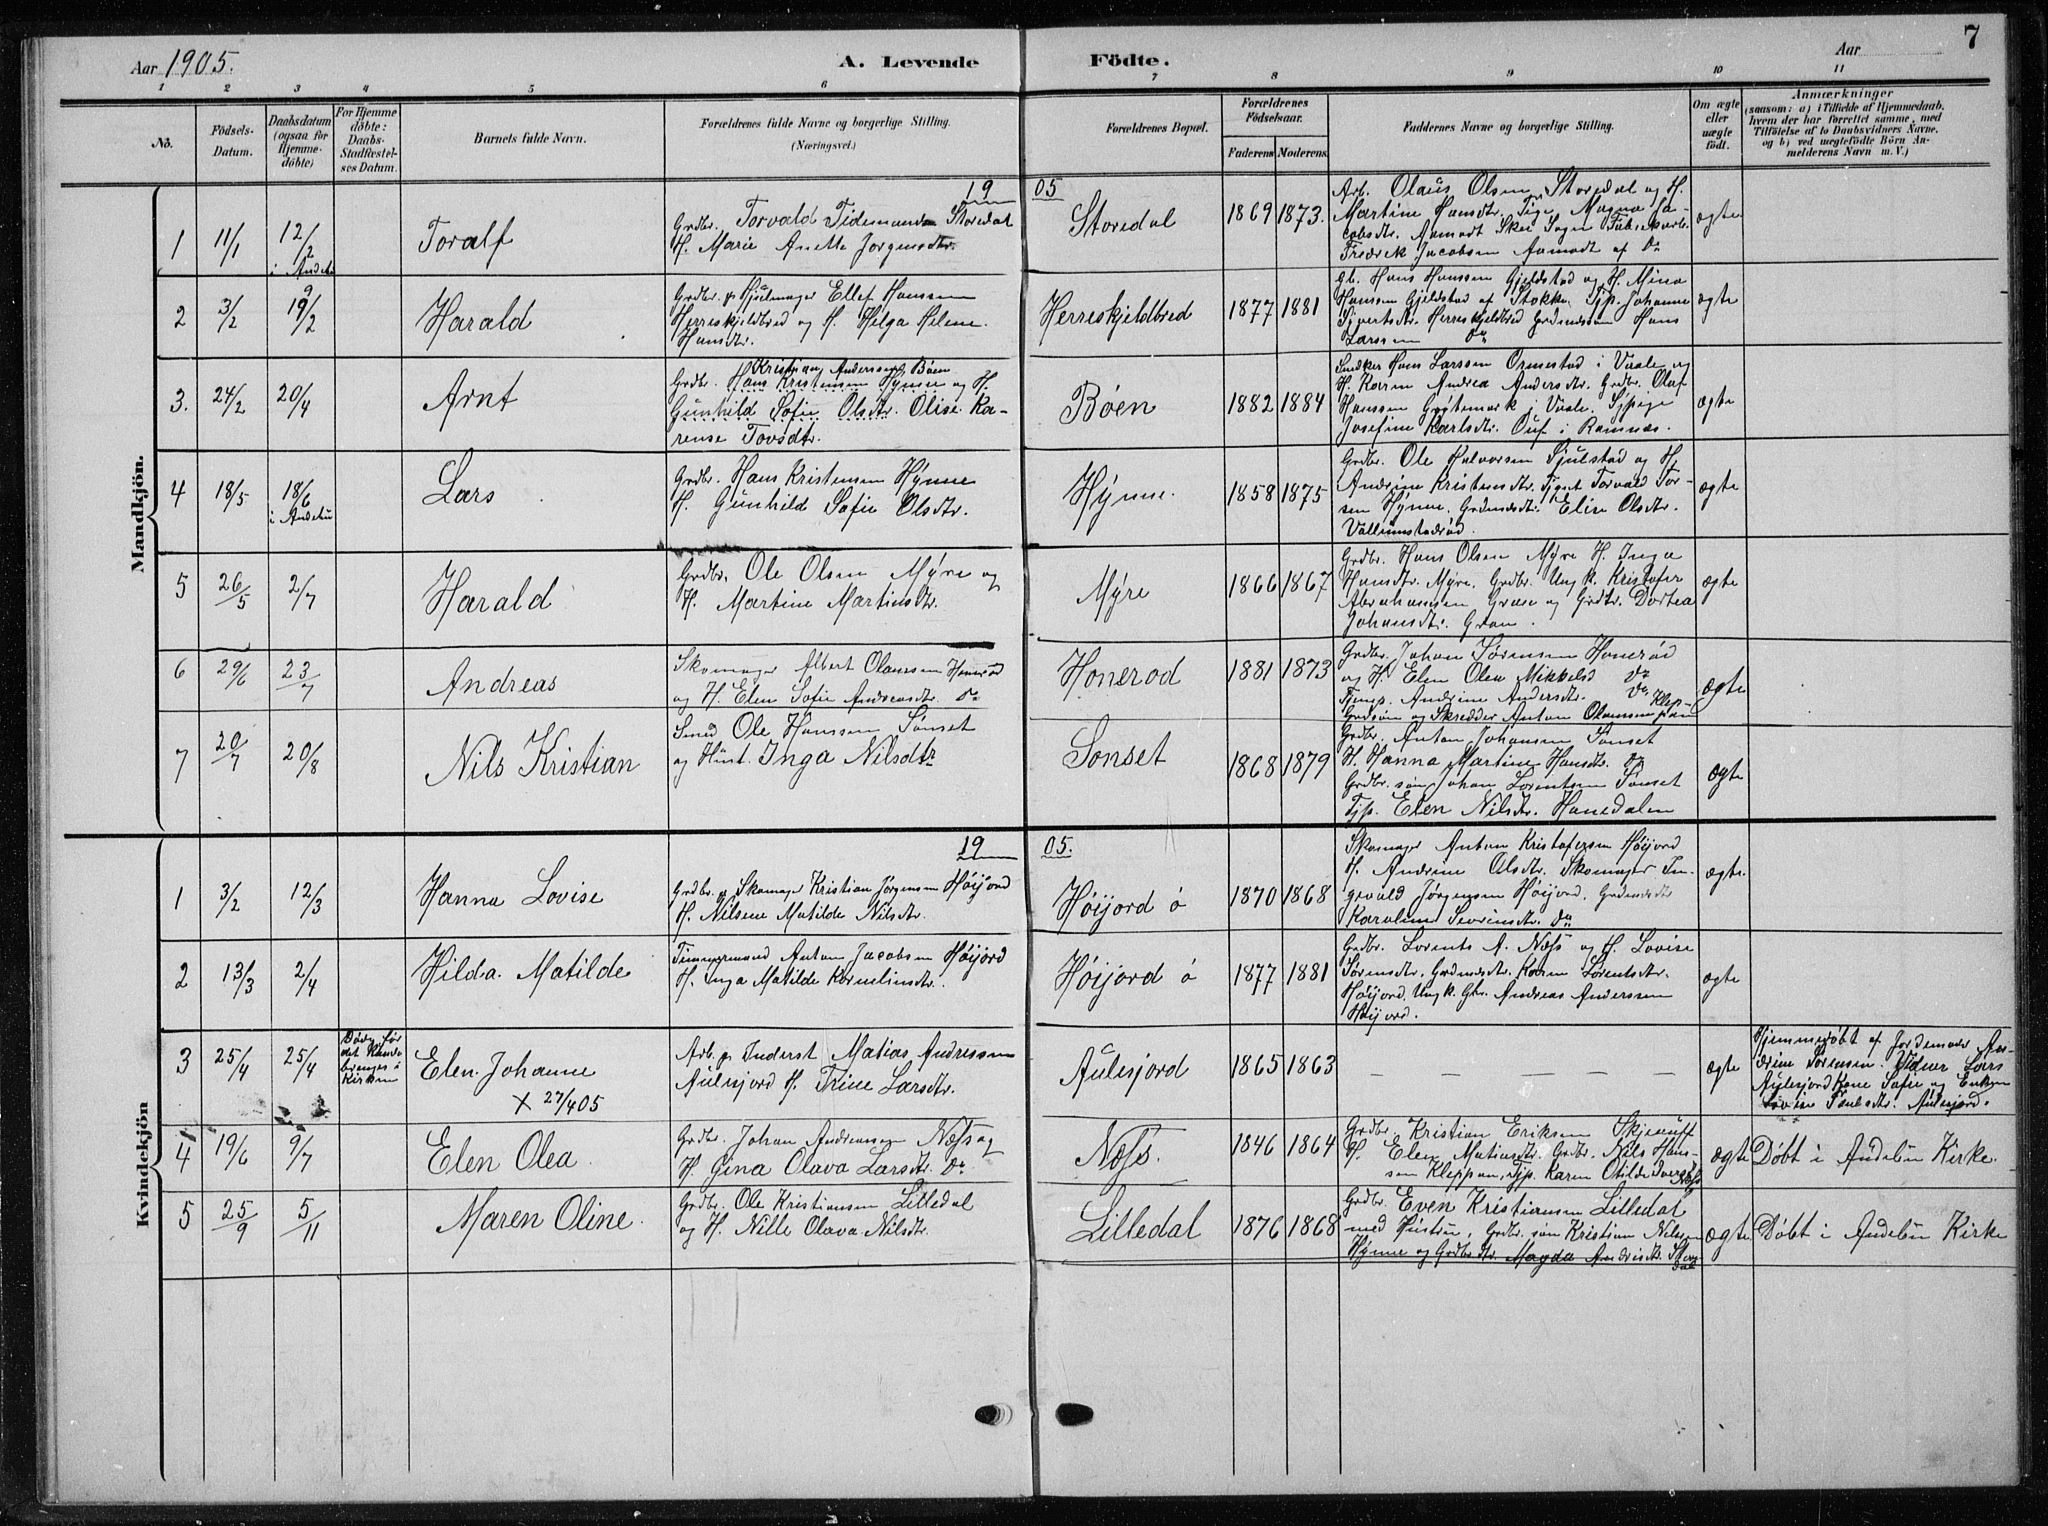 Aar 1905.
A. Levende
Födte.
Aar
7
1 2 3 4 5 6 7 8 9 10 11
No.
Födsels-
Datum.
Daabsdatum
(ogsaa for
Hjemme-
döbte)
For Hjemme
döbte:
Daabs-
Stadfæstel-
ses Datum.
Barnets fulde Navn.
Forældrenes fulde Navne og borgerlige Stilling.
(Næringsvei.)
Forældrenes Bopæl.
Forældrenes
Födselsaar.
Faderens Moderens.
Faddernes Navne og borgerlige Stilling.
Om ægte
eller
uægte
födt.
Anmærkninger
(saasom: a) i Tilfælde af Hjemmedaab.
hvem der har forrettet samme, med
Tilföielse af to Daabsvidners Navne.
og b) ved uægtefödte Börn An-
melderens Navn m. V.)
Mandkjön.
19
05
1 11/1 12/2
i Andebu
Toralf
Grdbr. Torvald Tidemand Storedal
H. Marie Anette Jørgensdtr.
Storedal
1869 1873.
Arb. Olaus Olsen Storedal og H.
Martine Hansdtr. Pige Magna Ja-
cobsdtr. Aamodt Skee Sogn Fabrikarb.
Fredrik Jacobsen Aamodt af do
ægte
2 3/2 19/2
Harald
Grdbr. og Hjulmager Ellef Hanssen
Herreskjeldbred og H. Helga Helene
Hansdtr.
Herreskjeldbred
1877 1881
Gb. Hans Hanssen Gjeldstad og H. Mina
Hanssen Gjeldstad af Stokke, Tjp. Johanne
Sivertsdtr. Herreskjeldbred Grdmdssøn Hans
Larssen do
ægte
3. 24/2 20/4
Arnt
Kristian Anderssen Böen
Grdbr. Hans Kristensen Hynne og H.
Gunhild Sofie Olsdtr. Olise Ka-
rense Tovsdtr.
Böen
1882 1884
Snedker Hans Larssen Ormestad i Vaale og
H. Karen Andrea Andersdtr. Grdbr. Olaf
Hanssen Grötemark i Vaale. Tjpige
Josefine Karlsdtr. Ouf i Ramnæs.
ægte
4 18/5 18/6
i Andebu
Lars
Grdbr. Hans Kristensen Hynne
H. Gunhild Sofie Olsdtr.
Hynne.
1858 1875
Grdbr. Ole Halvorsen Sjulstad og H.
Andrine Kristensdtr. Tjgut Torvald Tor-
sen Hynne. Grdmdsdtr. Elise Olsdtr.
ægte
5 26/5 2/7
Harald
Grdbr. Ole Olsen Myre og
H. Martine Martinsdtr.
Myre
1866 1867
Grdbr. Hans Olsen Myre H. Inga
Hansdtr. Myre. Grdbr. Ung k. Kristofer
Abrahamsen Gran og Grdtr. Dortea
Johansdtr. Gran.
ægte
6 29/6 23/7
Andreas
Skomager Albert Olaussen Honerød
og H. Elen Sofie Andreasdtr. do
Honerød
1881 1873
Grdbr. Johan Sørensen Honerød
og H. Elen Olea Mikkelsd do
Tjenp. Andrine Andersdtr. do Klep-
Grdsøn og Skrædder Anton Olaussen pan
ægte
7 20/7 20/8
Nils Kristian
Smed Ole Hanssen Sønset
og Hust. Inga Nilsdtr
Sonset
1868 1879
Grdbr. Anton Johansen Sønset
H. Hanna Martine Hansdtr. do
Grdbr. søn Johan Lorentsen Sønset
Tjp. Elen Nilsdtr. Hanedalen
ægte
Kvindekjön
19
05.
1 3/2 12/3
Hanna Lovise
Grdbr. og Skomager Kristian Jørgensen Høijord
H. Nilsine Matilde Nilsdtr.
Høijord ø
1870 1868
Skomager Anton Kristofersen Høijord
H. Andrine Olsdtr. Skomager In-
gevald Jørgensen Høijord. Grdmdsdtr
Karoline Sevrinsdtr. do
ægte.
2 13/3 2/4
Hilda Matilde
Tømmermand Anton Jacobsen Høijord
H. Inga Matilde Kornelinsdtr.
Høijord ø
1877 1881
Grdbr. Lorents A. Næss og H. Lovise
Sørensdtr. Grdmdsdtr. Karen Lørentsdtr.
Høijord. Ung k. Gbr. Andreas Anderssen
Høijord.
ægte
3 25/4 25/4
Døde før
det kunde
bringes i
Kirken
Elen Johanne
X 27/4 05
Arb. og Inderst Matias Andreassen
Aulesjord H. Trine Larsdtr.
Aulesjord
1865 1863
— — — — — —
ægte
Hjemmedøbt af Jordemoder An-
drine Sørensen. Vidner Lars
Aulesjord Kone Sofie og Enken
Lovise Paulsdtr. Aulesjord.
4 19/6 9/7
Elen Olea
Grdbr. Johan Andreassen Næss og
H. Gina Olava Larsdtr. do
Næss.
1846 1864
Grdbr. Kristian Eriksen Skjerauf
H. Elen Matiasdtr. Grdbr. Nils Hans-
sen Kleppan, Tjp. Karen Otilde Iversd. Næss
ægte
Døbt i Andebu Kirke.
5 25/9 5/11
Maren Oline
Grdbr. Ole Kristiansen Lilledal
og H. Nille Olava Nilsdtr.
Lilledal
1876 1868
Grdbr. Even Kristiansen Lilledal
med Hustru, Grdbr. søn Kristian Nilsen
Hynne og Grdbr. dtr. Magda Andrisdtr. Store-
dal
ægte
Døbt i Andebu Kirke